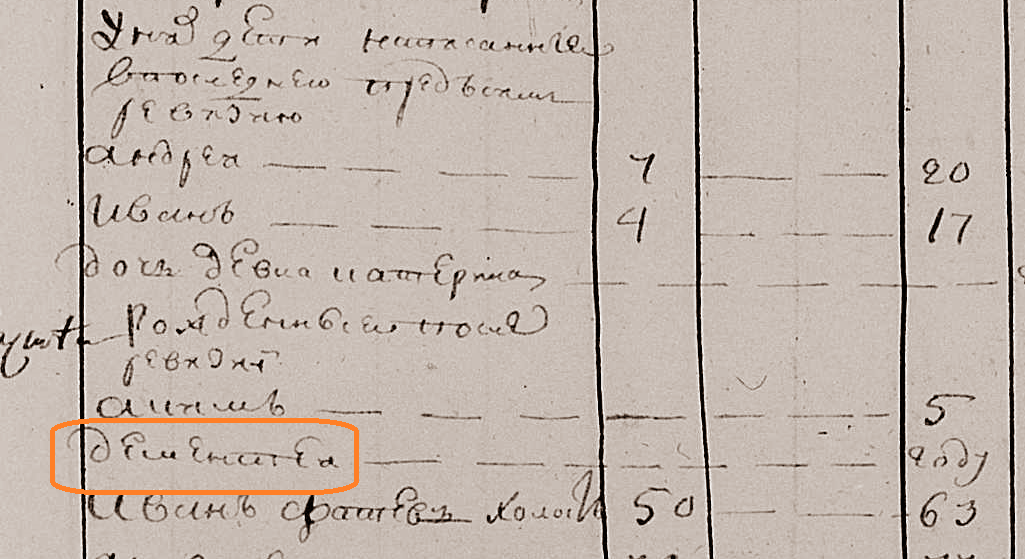 У них дети написанные
впоследнею предъсим
ревизию
андреи 7 20
Иванъ 4 17
дочь девка катерина
Рожденные после
ревизит
акимъ 5
дементеи году
Иванъ фатеев холост 50 63